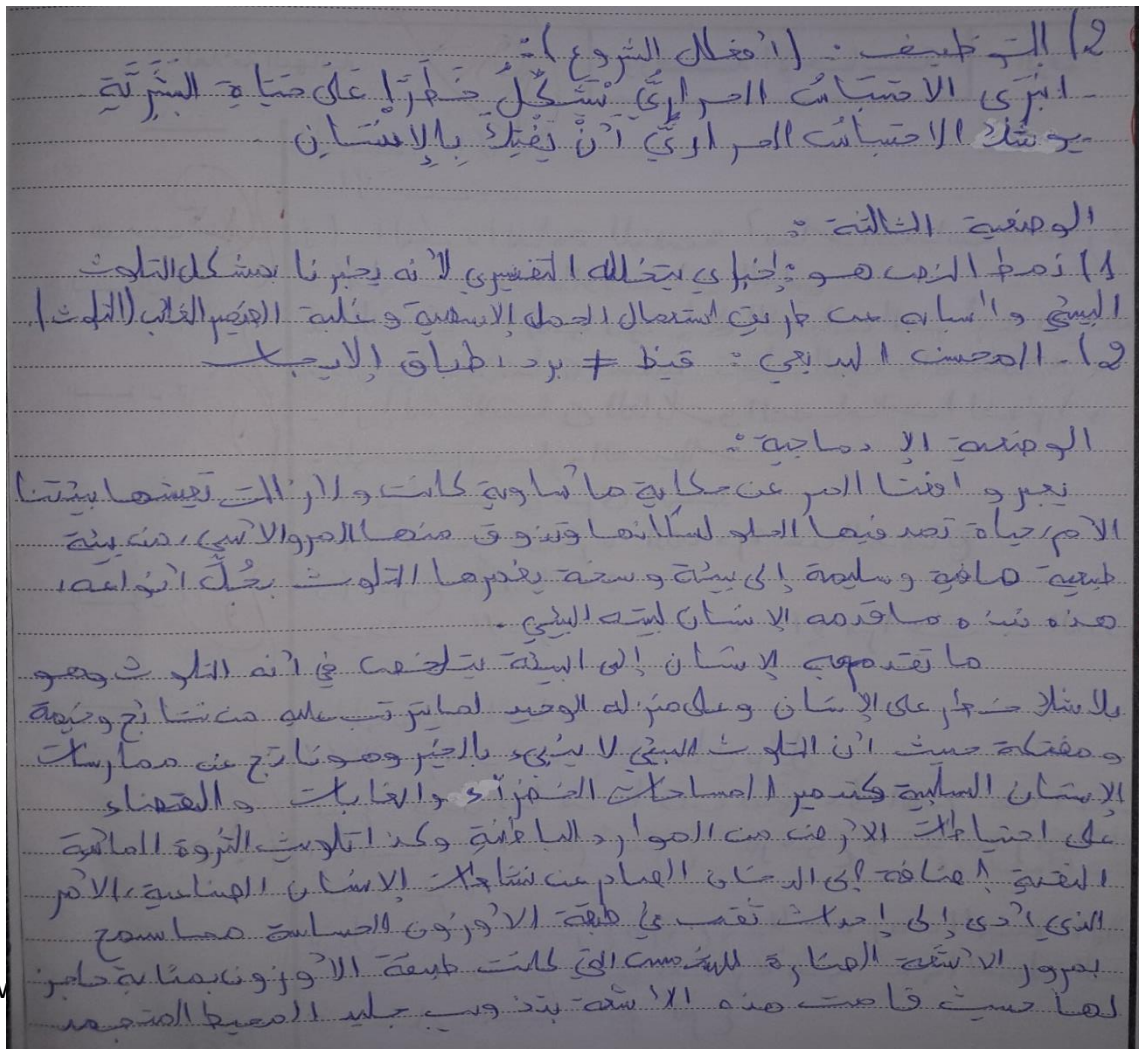 2) التوظيف: (أفعال الشروع):
- انبَرَى الاحتباسُ الحراريُّ يُشَكِّلُ خَطَرًا عَلَى حَيَاةِ البَشَرِيَّةِ
- يوشك الاحتباسُ الحراريُّ أَنْ يَفْتِكَ بِالإِنْسَانِ
الوضعية الثالثة:
1) نمط النص هو: إخباري يتخلله التفسيري لأنه يخبرنا بمشكل التلوث
البيئي وأسبابه عن طريق استعمال الجمل الإسمية وغلبة الضمير الغائب (التلوث).
2) - المحسن البديعي: قيظ ≠ برد: طباق الإيجاب
الوضعية الإدماجية:
يعبر واقعنا المر عن حكاية مأساوية كانت ولازالت تعيشها بيئتنا
الأم، حياة تصد فيها الحلو لسكانها وتذوق منها المر والأسى، من بيئة
طبيعية صافية وسليمة إلى بيئة وسخة يغمرها التلوث بجُلِّ أنواعه،
هذه نبذة ما قدمه الإنسان لبيته البيئي.
ما تقدم به الإنسان إلى البيئة يتلخص في أنه التلوث وهو
بلا شك خطر على الإنسان وعلى منزله الوحيد لما يترتب عليه من نتائج وخيمة
ومفتكة حيث أن التلوث البيئي لا ينبىء بالخير وهو ناتج عن ممارسات
الإنسان السلبية كتدمير المساحات الخضراء والغابات والقضاء
على احتياطات الأرض من الموارد الباطنية وكذا تلويث الثروة المائية
النقية إضافة إلى الدخان الصادم عن نشاطات الإنسان الصناعية، الأمر
الذي أدى إلى إحداث ثقب في طبقة الأوزون الحساسة مما سمح
بمرور الأشعة الضارة للشمس التي كانت طبقة الأوزون بمثابة حاجز
لها حيث قامت هذه الأشعة بتذويب جليد المحيط المتجمد